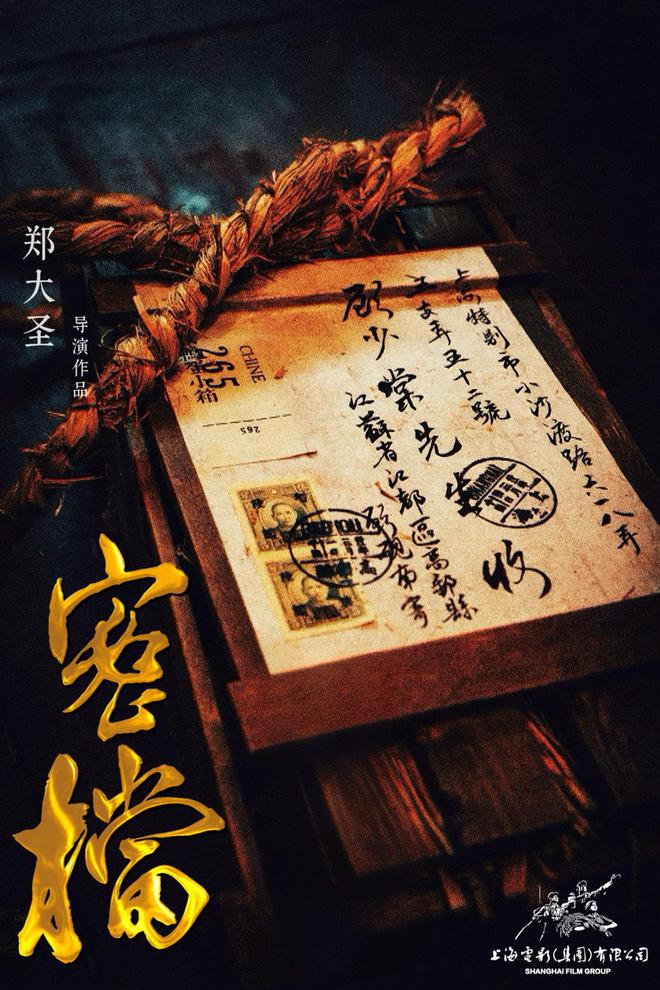 郑大圣
导演作品
上海特别市小沙渡路六一八弄
五十二號
顾少棠先生 收
江蘇省江都區高郵縣
CHINE
265
小箱
265
密檔
上海电影(集团)有限公司
SHANGHAI FILM GROUP